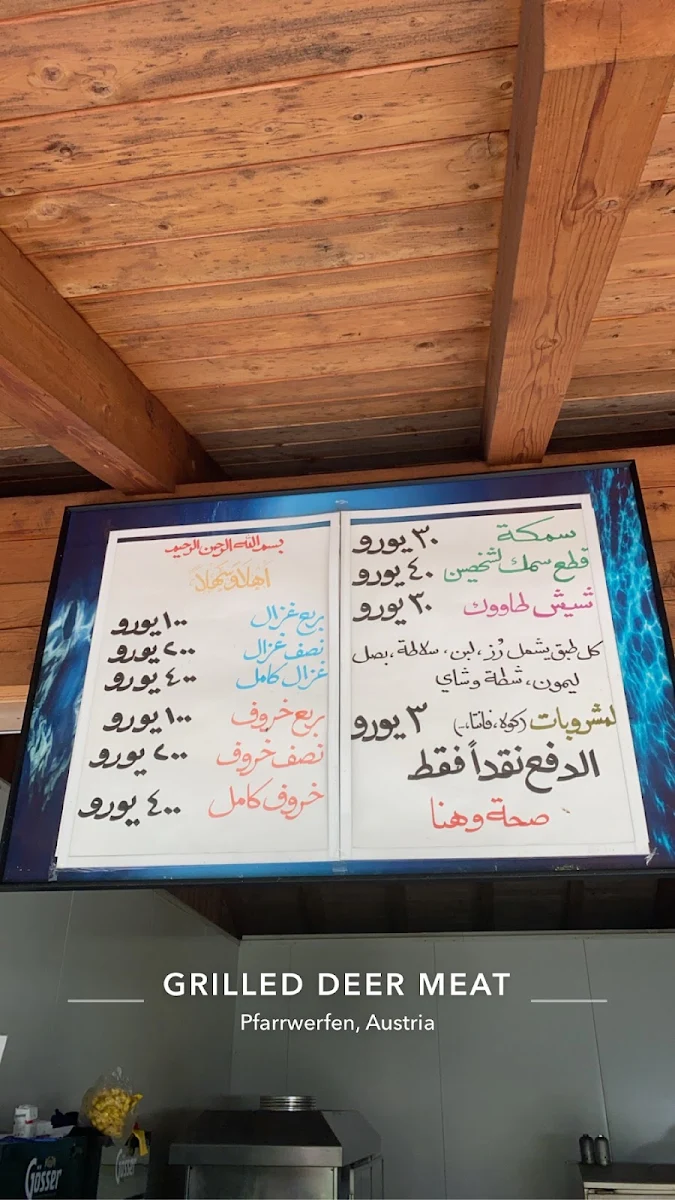 بسم الله الرحمن الرحيم
أهلاً وسهلاً
ربع غزال ١٠٠ يورو
نصف غزال ٢٠٠ يورو
غزال كامل ٤٠٠ يورو
ربع خروف ١٠٠ يورو
نصف خروف ٢٠٠ يورو
خروف كامل ٤٠٠ يورو
سمكة ٣٠ يورو
قطع سمك لشخصين ٤٠ يورو
شيش طاووك ٣٠ يورو
كل طبق يشمل رُز، لبن، سلاطة، بصل
ليمون، شطة وشاي
لمشروبات (كولا، فانتا،..) ٣ يورو
الدفع نقداً فقط
صحة وهنا
GRILLED DEER MEAT
Pfarrwerfen, Austria
Gösser
Gösser